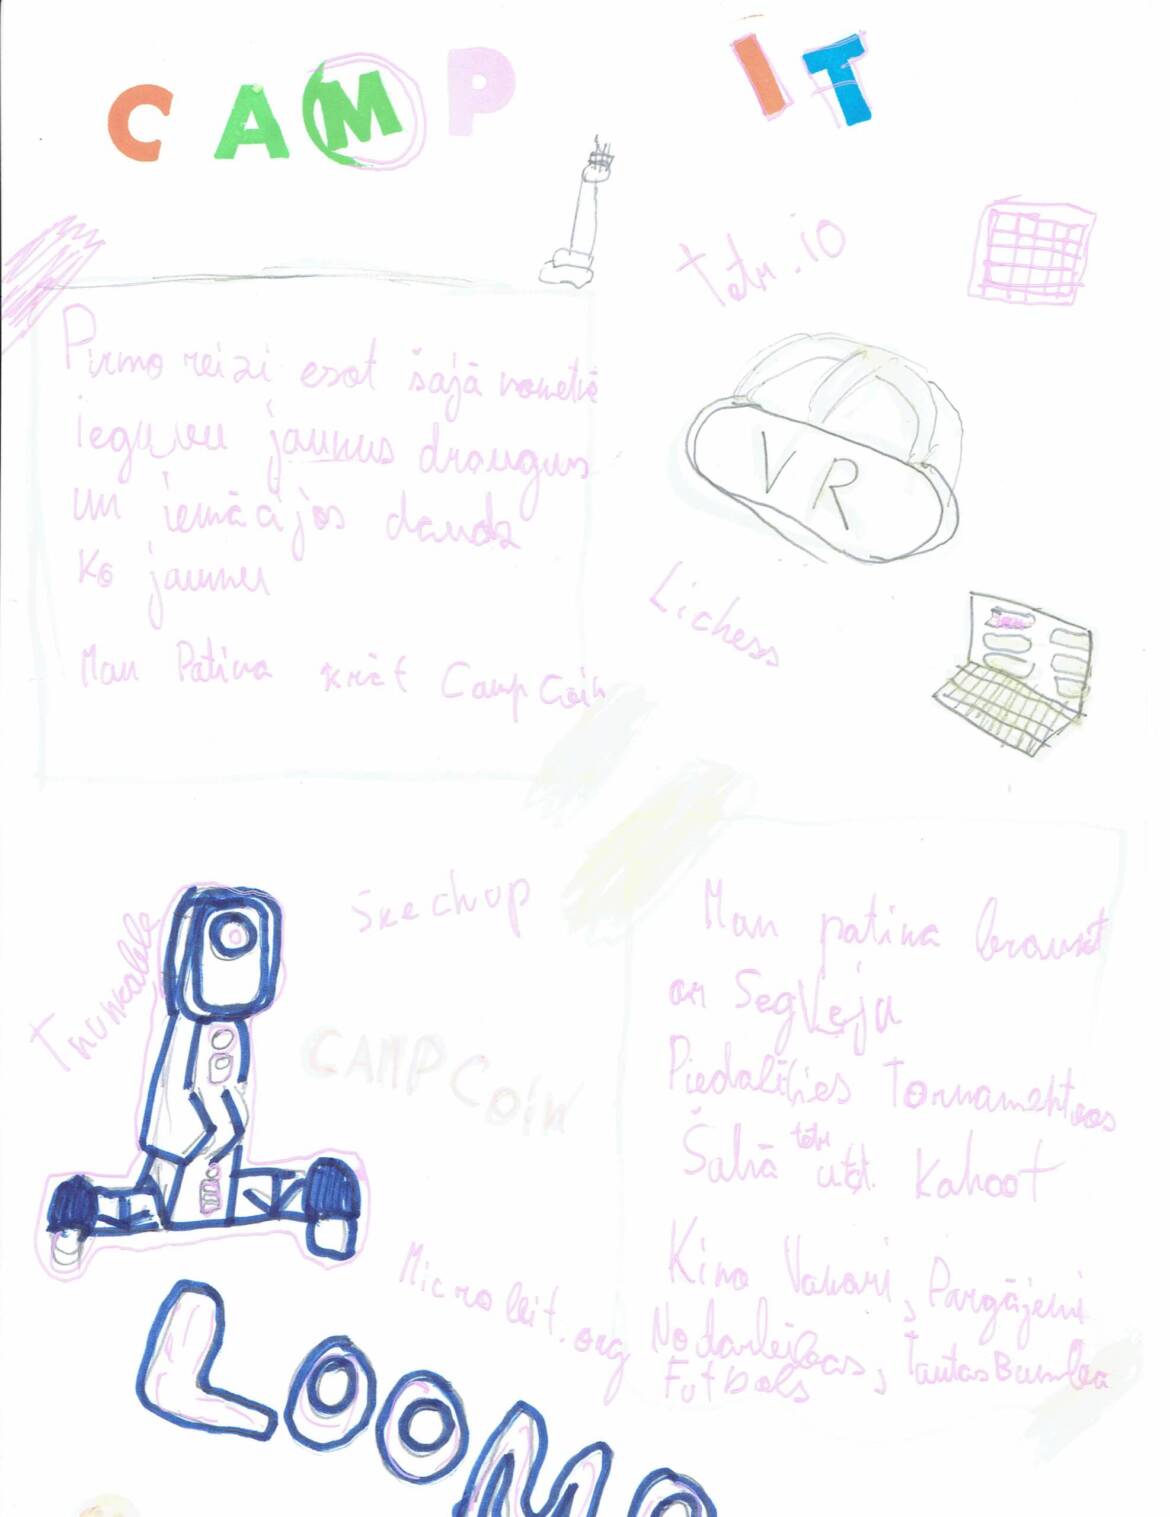 CAMP IT
tetr.io
Pirmo reizi esot šajā nometnē
ieguvu jaunus draugus
un iemācījos daudz
ko jaunu
Man Patika krāt CampCoin
VR
Lichess
Skechup
Thunkable
CAMPCoin
Man patika braukt
ar Segveju
Piedalīties Tornamentos
Šahā tetr utt. Kahoot
Kino Vakari, Pārgājieni
Nodarbības, Tautas Bumba
Futbols
Microbit.org
LOOMO